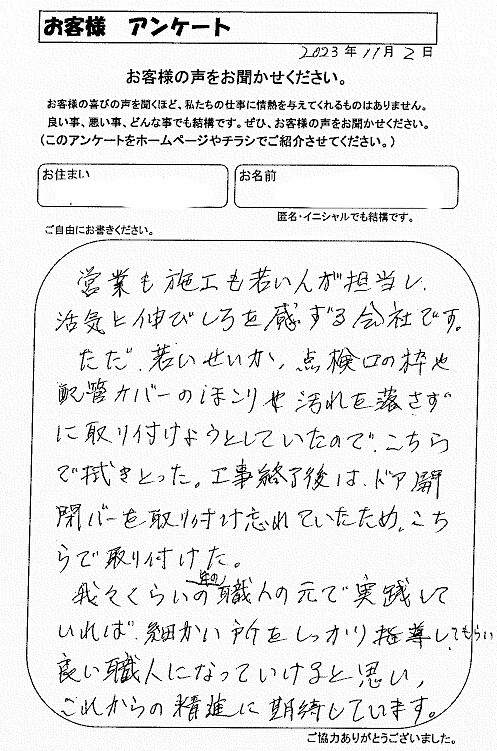 お客様 アンケート
2023年11月2日
お客様の声をお聞かせください。
お客様の喜びの声を聞くほど、私たちの仕事に情熱を与えてくれるものはありません。
良い事、悪い事、どんな事でも結構です。ぜひ、お客様の声をお聞かせください。
(このアンケートをホームページやチラシでご紹介させてください。)
お住まい
お名前
匿名・イニシャルでも結構です。
ご自由にお書きください。
営業も施工も若い人が担当し、
活気と伸びしろを感ずる会社です。
ただ、若いせいか、点検口の枠や
配管カバーのほこりや汚れを落さず
に取り付けようとしていたので、こちら
で拭きとった。工事終了後は、ドア開
閉バーを取り付け忘れていたため、こち
らで取り付けた。
我々くらいの年の職人の元で実践して
いれば、細かい所をしっかり指導してもらい
良い職人になっていけると思い、
これからの精進に期待しています。
ご協力ありがとうございました。